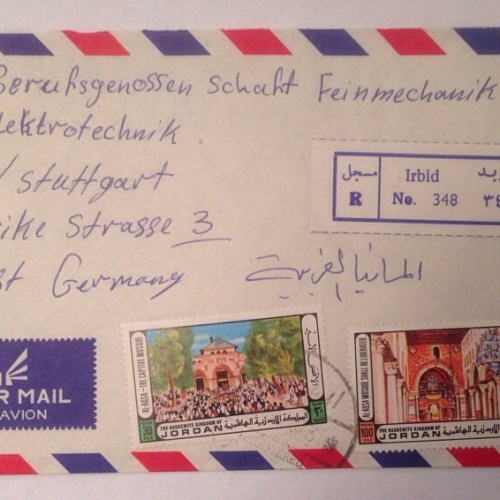 Berufsgenossenschaft Feinmechanik
Elektrotechnik
/ Stuttgart
ike Strasse 3
st Germany
المانيا الغربية
مسجل Irbid بد
R No. 348 ٣٤
R MAIL
AVION
AL-AQSA - THE CAPTIVE MOSQUE
30 FILS
THE HASHEMITE KINGDOM OF
JORDAN المملكة الأردنية الهاشمية
٣٠
AL AQSA MOSQUE SHALL BE LIBERATED
100
THE HASHEMITE KINGDOM OF
JORDAN المملكة الأردنية الهاشمية